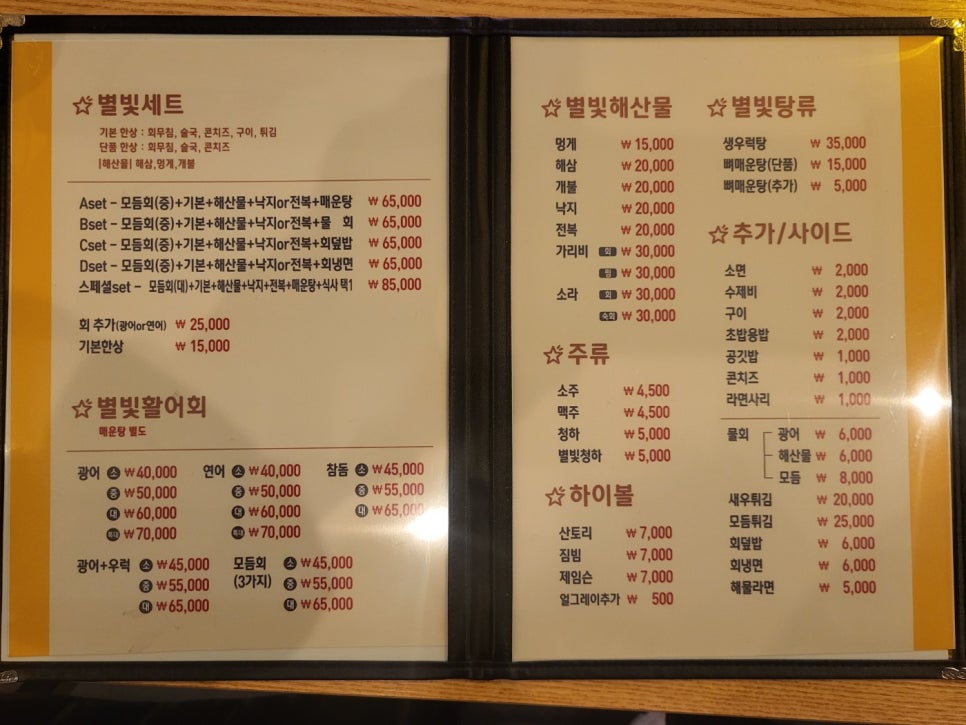 별빛세트
기본 한상 : 회무침, 술국, 콘치즈, 구이, 튀김
단품 한상 : 회무침, 술국, 콘치즈
|해산물| 해삼,멍게,개불
Aset - 모듬회(중)+기본+해산물+낙지or전복+매운탕 ₩ 65,000
Bset - 모듬회(중)+기본+해산물+낙지or전복+물 회 ₩ 65,000
Cset - 모듬회(중)+기본+해산물+낙지or전복+회덮밥 ₩ 65,000
Dset - 모듬회(중)+기본+해산물+낙지or전복+회냉면 ₩ 65,000
스페셜set - 모듬회(대)+기본+해산물+낙지+전복+매운탕+식사 택1 ₩ 85,000
회 추가(광어or연어) ₩ 25,000
기본한상 ₩ 15,000
별빛활어회
매운탕 별도
광어 소 ₩40,000 연어 소 ₩40,000 참돔 소 ₩45,000
중 ₩50,000 중 ₩50,000 중 ₩55,000
대 ₩60,000 대 ₩60,000 대 ₩65,000
특대 ₩70,000 특대 ₩70,000
광어+우럭 소 ₩45,000 모듬회 소 ₩45,000
중 ₩55,000 (3가지) 중 ₩55,000
대 ₩65,000 대 ₩65,000
별빛해산물
멍게 ₩ 15,000
해삼 ₩ 20,000
개불 ₩ 20,000
낙지 ₩ 20,000
전복 ₩ 20,000
가리비 회 ₩ 30,000
찜 ₩ 30,000
소라 회 ₩ 30,000
숙회 ₩ 30,000
주류
소주 ₩ 4,500
맥주 ₩ 4,500
청하 ₩ 5,000
별빛청하 ₩ 5,000
하이볼
산토리 ₩ 7,000
짐빔 ₩ 7,000
제임슨 ₩ 7,000
얼그레이추가 ₩ 500
별빛탕류
생우럭탕 ₩ 35,000
뼈매운탕(단품) ₩ 15,000
뼈매운탕(추가) ₩ 5,000
추가/사이드
소면 ₩ 2,000
수제비 ₩ 2,000
구이 ₩ 2,000
초밥용밥 ₩ 2,000
공깃밥 ₩ 1,000
콘치즈 ₩ 1,000
라면사리 ₩ 1,000
물회 광어 ₩ 6,000
해산물 ₩ 6,000
모듬 ₩ 8,000
새우튀김 ₩ 20,000
모듬튀김 ₩ 25,000
회덮밥 ₩ 6,000
회냉면 ₩ 6,000
해물라면 ₩ 5,000